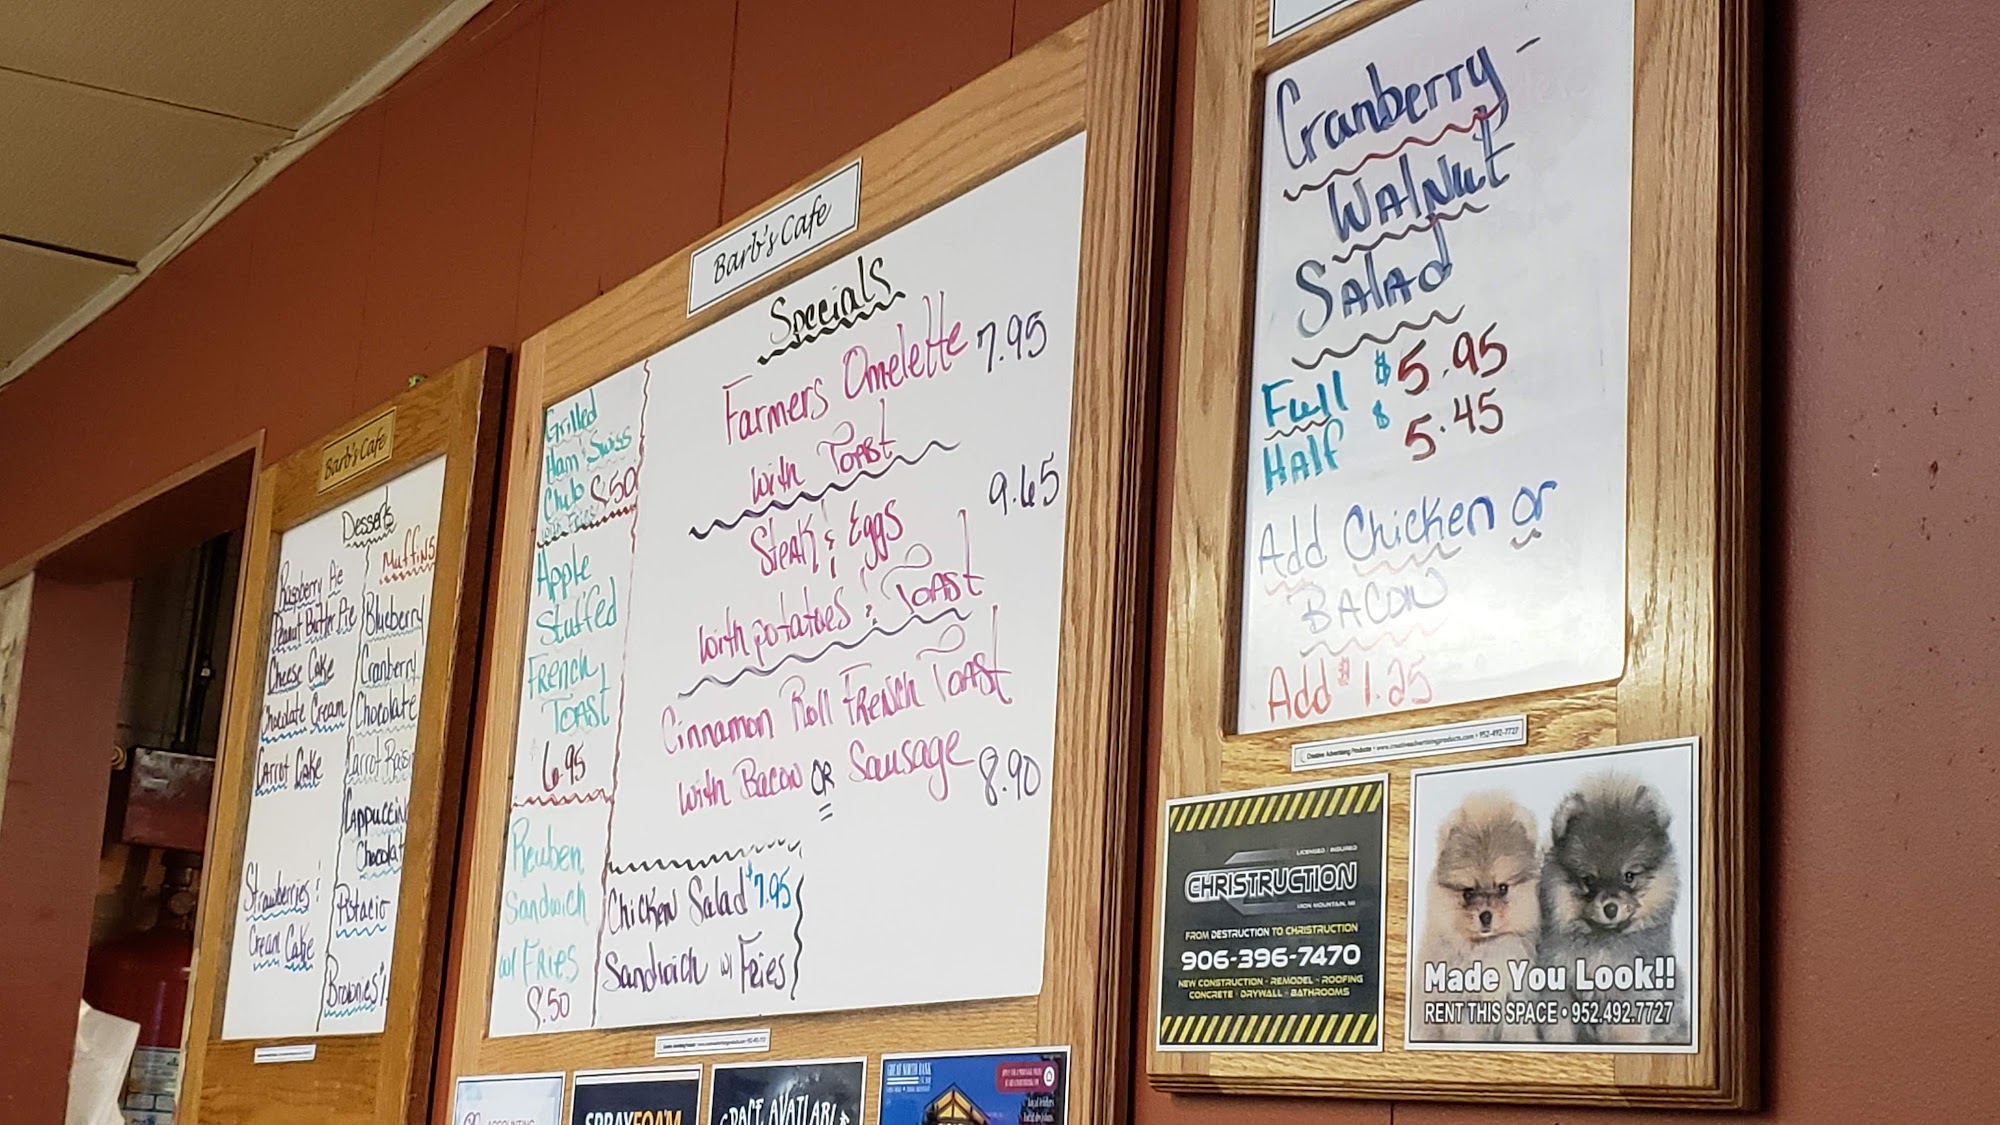 Barb's Cafe
Desserts
Raspberry Pie
Peanut Butter Pie
Cheese Cake
Chocolate Cream
Carrot Cake
Strawberries &
Cream Cake
Muffins
Blueberry
Cranberry
Chocolate
Carrot Raisin
Cappuccin
Chocolat
Pistacio
Brownies
Barb's Cafe
Specials
Grilled
Ham & Swiss
Club 8.50
Apple
Stuffed
French
Toast
6.95
Reuben
Sandwich
w/ Fries
8.50
Farmers Omelette 7.95
with Toast
Steak & Eggs 9.65
with potatoes & Toast
Cinnamon Roll French Toast
with Bacon OR Sausage 8.90
Chicken Salad $7.95
Sandwich w/ Fries
Cranberry-
Walnut
Salad
Full $5.95
Half $5.45
Add Chicken or
Bacon
Add $1.25
Creative Advertising Products • www.creativeadvertisingproducts.com • 952-492-7727
LICENSED / INSURED
CHRISTRUCTION
IRON MOUNTAIN, MI
FROM DESTRUCTION TO CHRISTRUCTION
906-396-7470
NEW CONSTRUCTION - REMODEL - ROOFING
CONCRETE - DRYWALL - BATHROOMS
Made You Look!!
RENT THIS SPACE • 952.492.7727
ACCOUNTING
SPRAYFOAM
SPACE AVAILABL
GREAT NORTH BANK